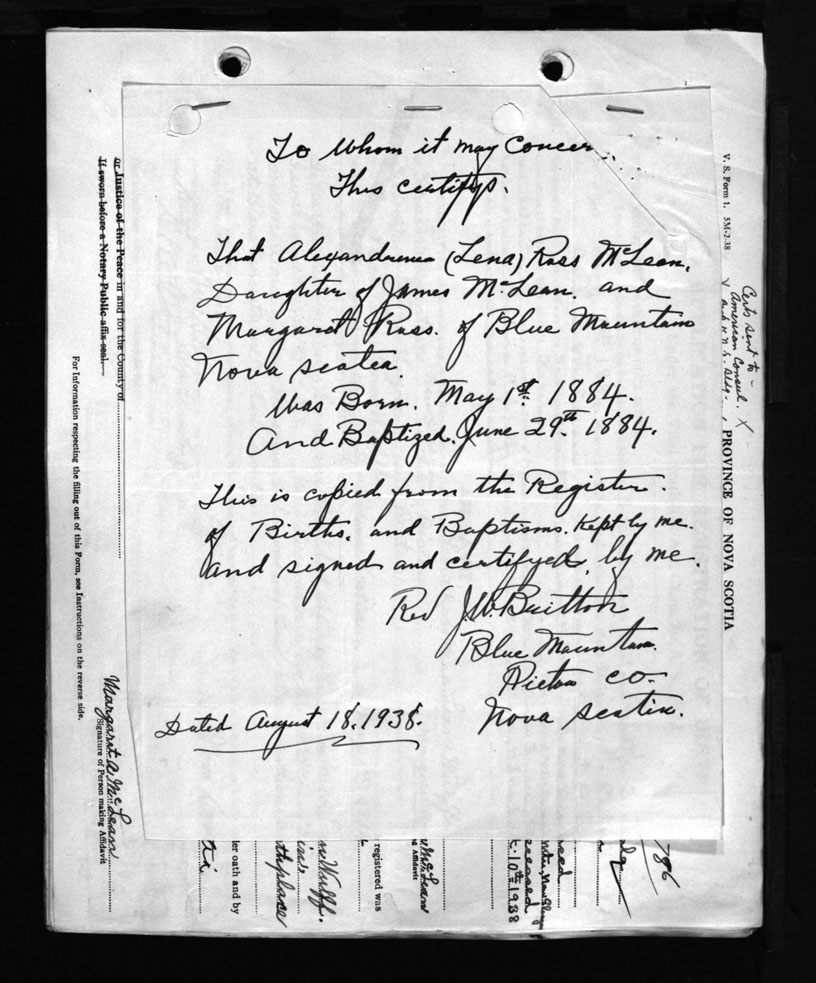 To Whom it may Concer
This certifys.
That Alexandrenea (Lena) Ross McLean,
Daughter of James McLean. and
Margaret Ross. of Blue Mountain
Nova scotea.
Was Born. May 1st. 1884.
And Baptized. June 29th 1884.
This is copied from the Register.
of Births. and Baptisms. Kept by me.
and signed and certifyed by me.
Rev J.W. Britton
Blue Mountain.
Pictou co-
Nova scotia.
Dated August 18. 1938.
V. S. Form 1. 5M-2-38
Certs sent to -
American Consul. X
, PROVINCE OF NOVA SCOTIA
or Justice of the Peace in and for the County of
If sworn before a Notary Public affix seal.
For Information respecting the filling out of this Form, see Instructions on the reverse side.
Margaret A. McLean
Signature of Person making Affidavit
786
10th 1938
McLean
g Affidavit
registered was
Wulff.
thplace
ler oath and by